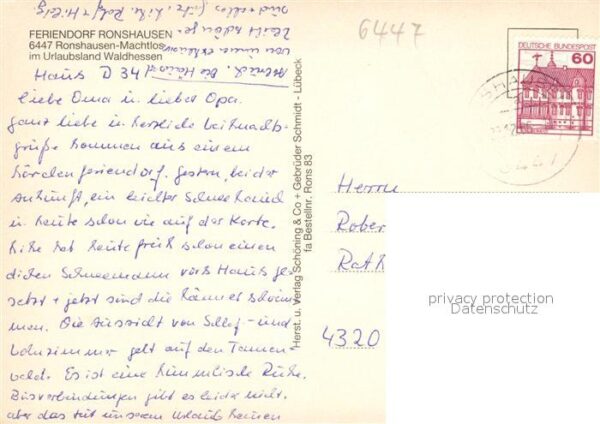 FERIENDORF RONSHAUSEN
6447 Ronshausen-Machtlos
im Urlaubsland Waldhessen
6447
DEUTSCHE BUNDESPOST
60
Haus D 34
Liebe Oma u. lieber Opa.
ganz liebe u. herzliche Weihnachts-
grüße kommen aus einem
Feriendorf. Gestern, bei der
Ankunft, ein leichter Schnee
u. heute schon wie auf der Karte.
hat heute früh schon einen
dicken Schneemann vors Haus ge-
setzt + jetzt sind die Männer schwim-
men. Die Aussicht von Schlaf- und
Wohnzimmer geht auf den Tannen-
wald. Es ist eine himmlische Ruhe.
Busverbindungen gibt es leider nicht,
aber das tut unserem Urlaub keinen
Herst. u. Verlag Schöning & Co + Gebrüder Schmidt · Lübeck
fa Bestellnr. Rons 83
Herrn
Rober
Rath
4320
privacy protection
Datenschutz